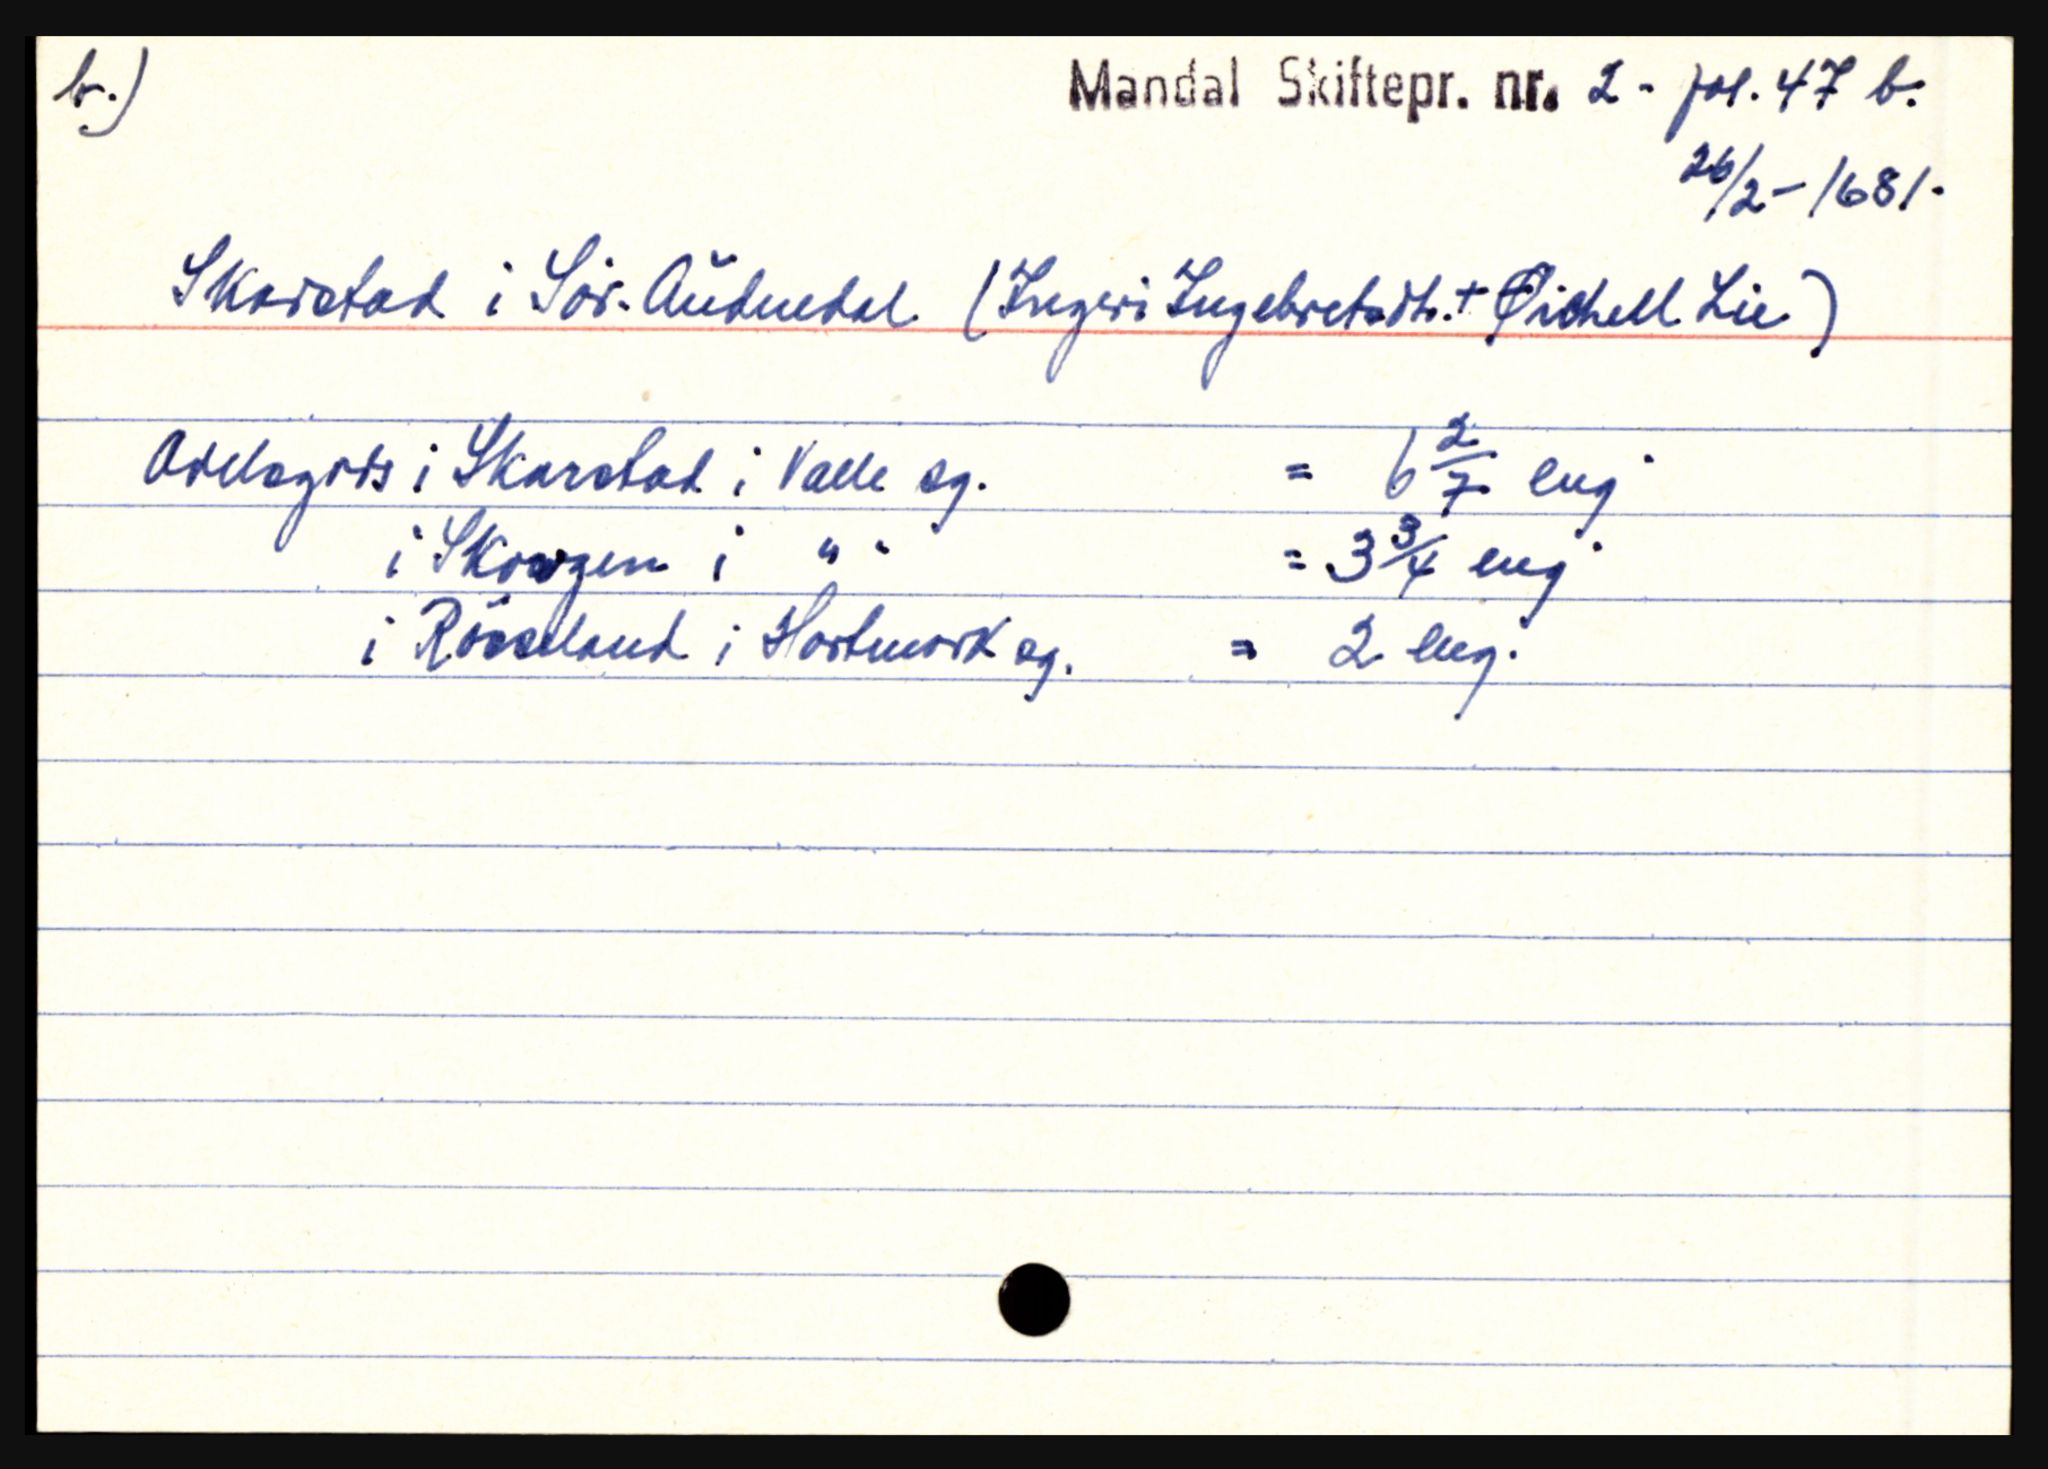 b.)
Mandal Skiftepr. nr. 2 - fol. 47 b.
26/2 - 1681.
Skarstad i Sör-Audnedal (Ingeri Ingebretsdtr. + Eichell Lie)
Odelsgods i Skarstad i Valle sg. = 6 2/7 eng
i Skougen i " " = 3 3/4 eng
i Rösseland i Hartmark sg. = 2 eng.